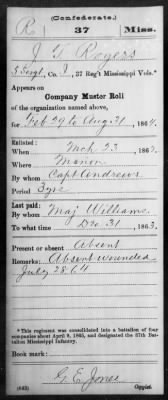 (Confederate.)
R 37 Miss.
J T Rogers
5 Sergt, Co. I, 37 Reg't Mississippi Vols.*
Appears on
Company Muster Roll
of the organization named above,
for Feb 29 to Aug 31, 1864.
Enlisted:
When Mch 23, 1862.
Where Marion
By whom Capt Andrews
Period 3 yrs
Last paid:
By whom Maj Williams
To what time Dec 31, 1863.
Present or absent Absent
Remarks: Absent wounded
July 28 64
*This regiment was consolidated into a battalion of four
companies about April 9, 1865, and designated the 37th Bat-
talion Mississippi Infantry.
Book mark:
G. E. Jones
(642) Copyist.